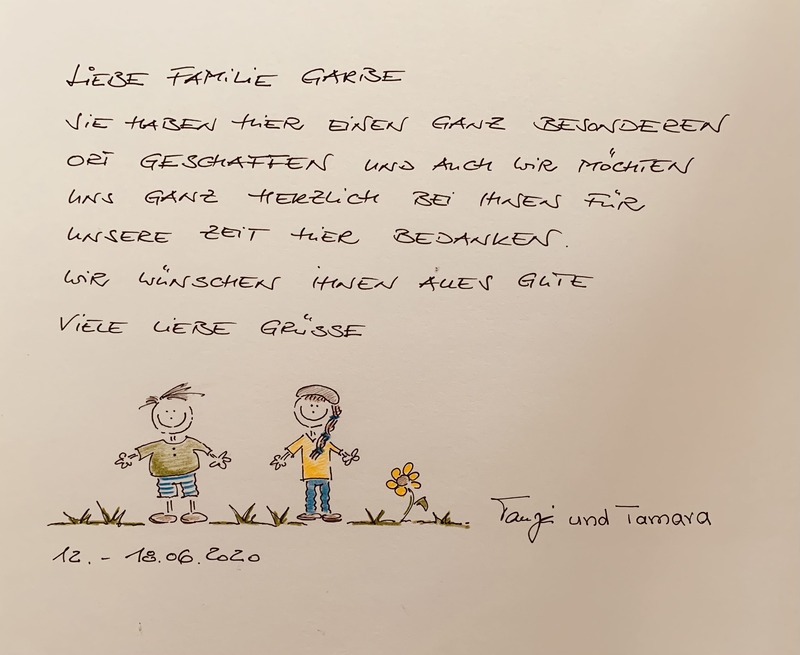 LIEBE FAMILIE GARBE
SIE HABEN HIER EINEN GANZ BESONDEREN
ORT GESCHAFFEN UND AUCH WIR MÖCHTEN
UNS GANZ HERZLICH BEI IHNEN FÜR
UNSERE ZEIT HIER BEDANKEN.
WIR WÜNSCHEN IHNEN ALLES GUTE
VIELE LIEBE GRÜSSE
und Tamara
12. - 18.06.2020